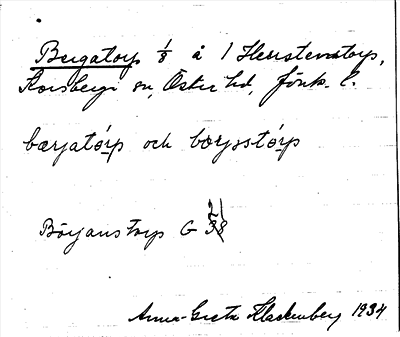 Bergatorp 1/8 å 1 Heristenstorp,
Korsberga sn, Östra hd, Jönk. l.
bærjatórp och bærjstórp
Börjanstorp G
Anna-Greta Hackenberg 1934